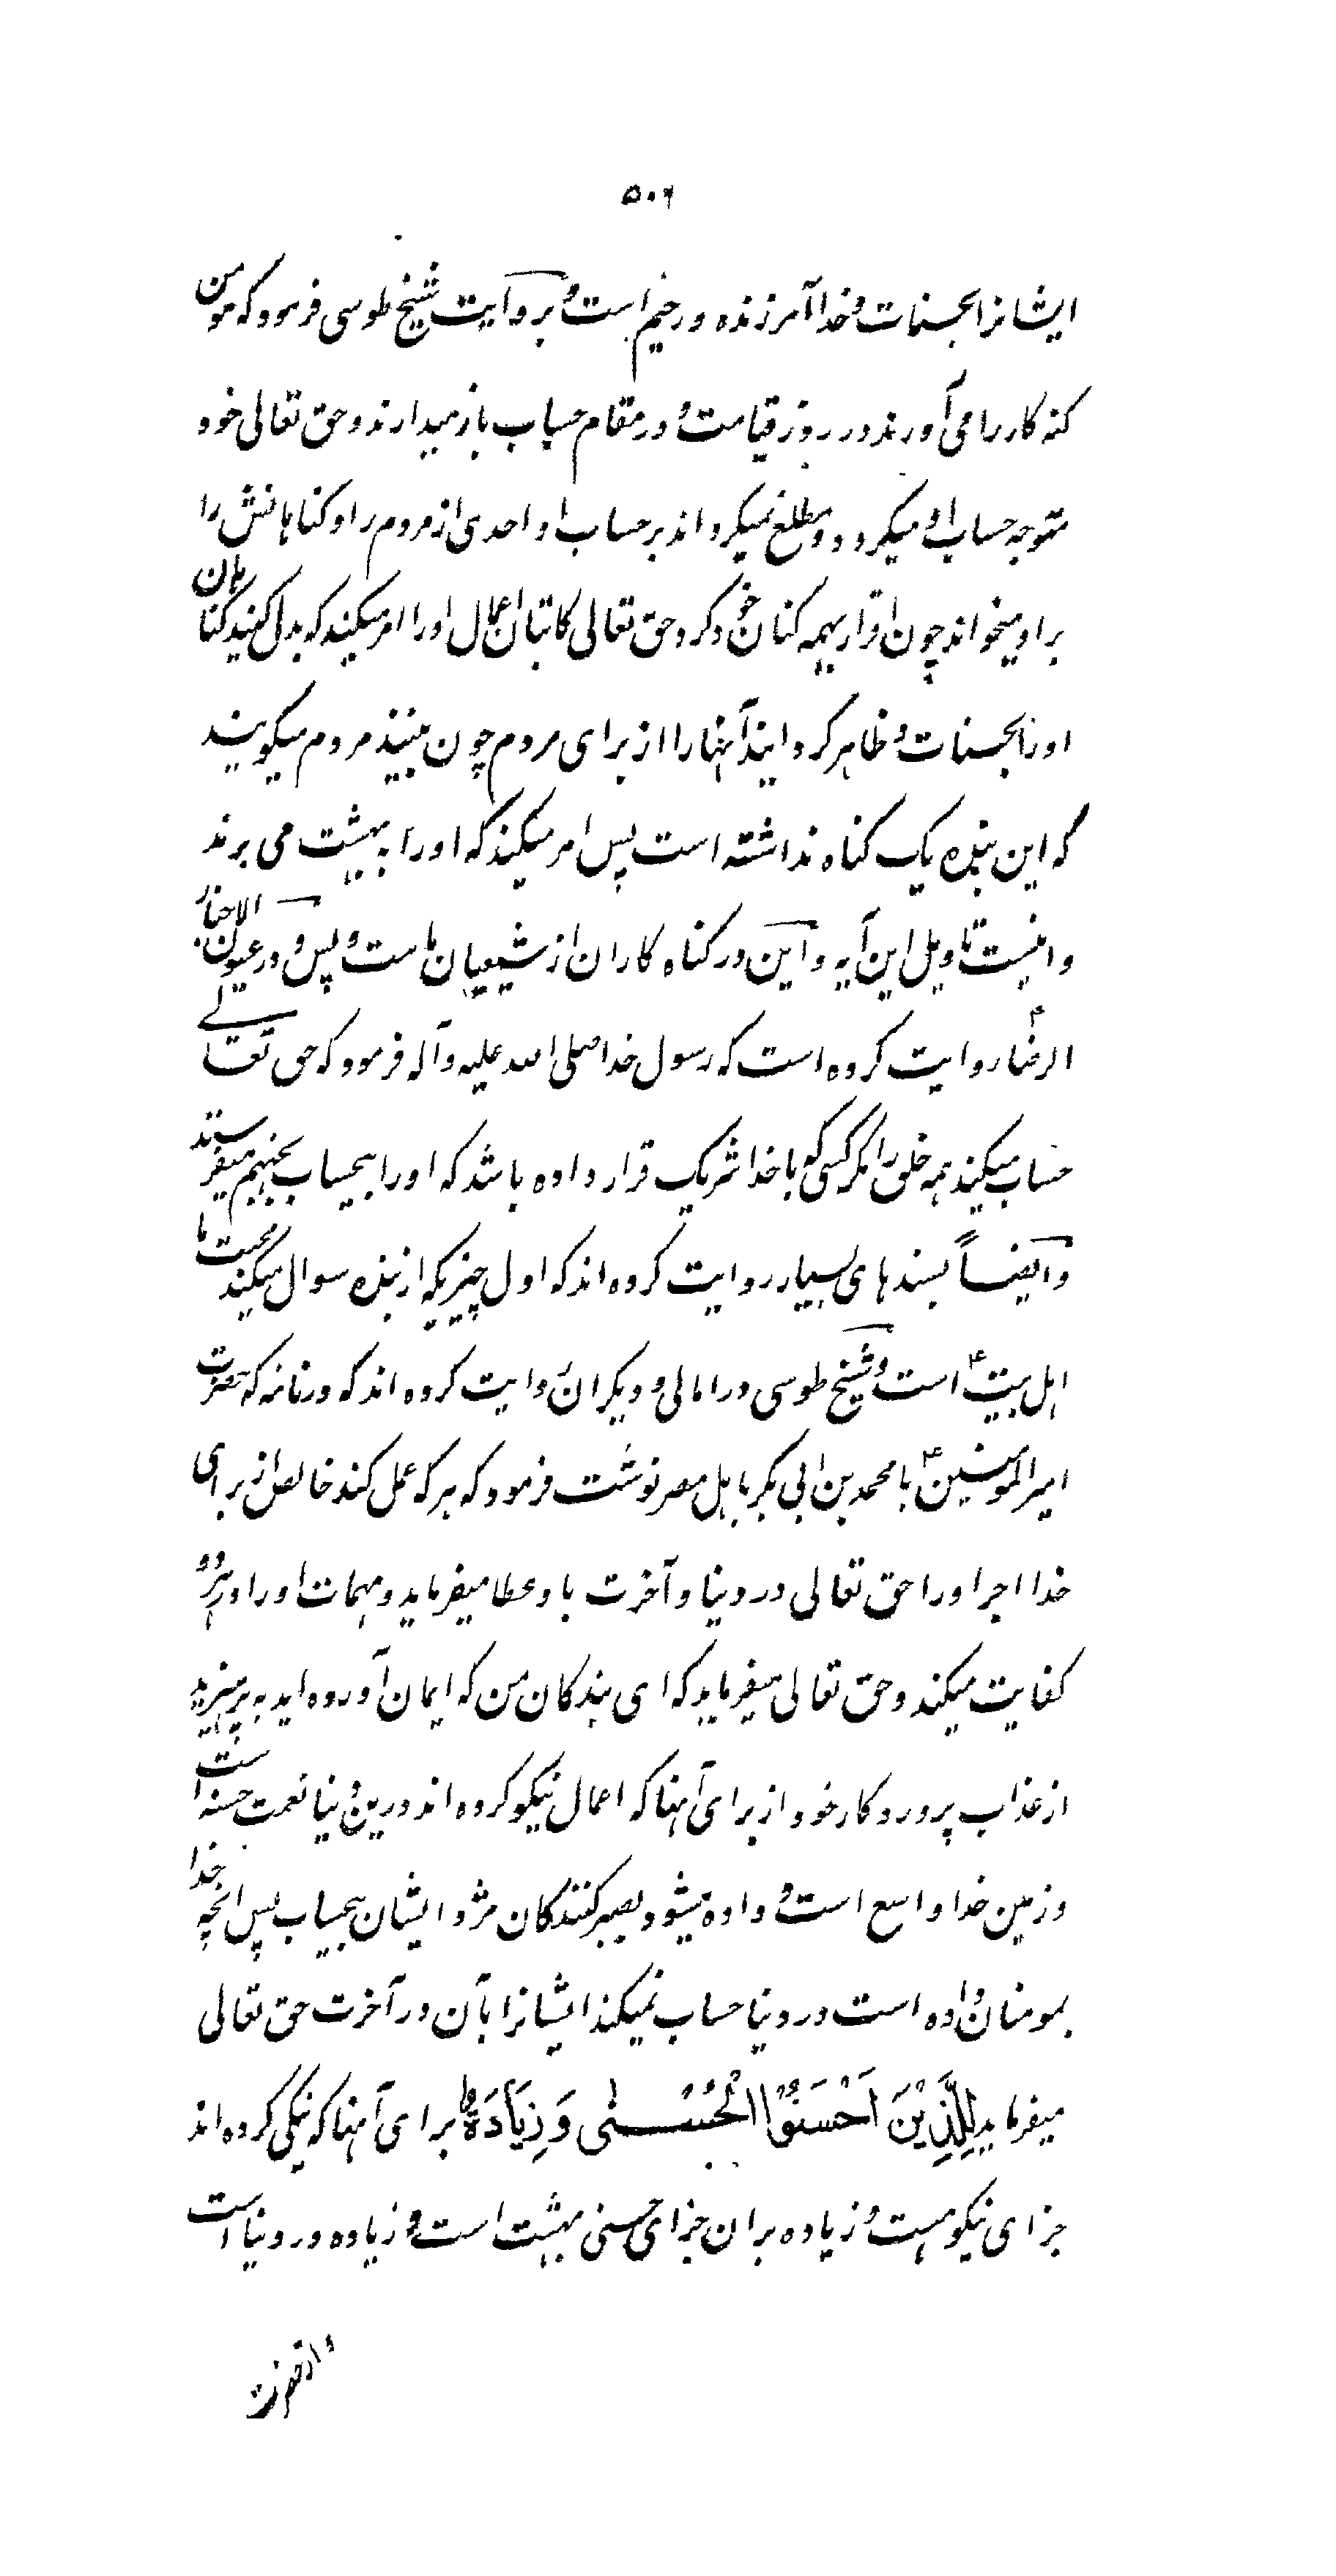 ۵۰۶
ایشانرا بحسنات و خدا آمرزنده و رحیم است و بروایت شیخ طوسی فرمود که مومن
کنه کار را می آورند در روز قیامت و در مقام حساب باز میدارند و حق تعالی خود
متوجه حساب او میکردد و مطلع نمیکرداند بر حساب او احدی از مردم را و کناهانش را
بر او میخواند چون اقرار بهمه کناهان خود کرد حق تعالی کاتبان اعمال او را امر میکند که بدل کنید کناهان
او را بحسنات و ظاهر کردانید آنها را از برای مردم چون ببینند مردم میکویند
که این بنده یک کناه نداشته است پس امر میکند که او را به بهشت می برند
و اینست تاویل این آیه و این در کناه کاران از شیعیان ماست و بس و در عیون الاخبار
الرضا ع روایت کرده است که رسول خدا صلی الله علیه و آله فرمود که حق تعالے
حساب میکند همه خلق را مکر کسی که با خدا شریک قرار داده باشد که او را بیحساب بجهنم میفرستد
و ایضاً بسندهای بسیار روایت کرده اند که اول چیزیکه از بنده سوال میکند محبت ما
اهل بیت ع است و شیخ طوسی در امالی و دیکران روایت کرده اند که در نامه که حضرت
امیر المومنین ع با محمد بن ابی بکر باهل مصر نوشت فرمود که هر که عمل کند خالص از برای
خدا اجر او را حق تعالی در دنیا و آخرت باو عطا میفرماید و مهمات او را در هر دو
کفایت میکند و حق تعالی میفرماید که ای بندکان من که ایمان آورده اید به پرهیزید
از عذاب پروردکار خود از برای آنها که اعمال نیکو کرده اند درین دنیا نعمت حسنه است
و زمین خدا واسع است و داده میشود بصبر کنندکان مزد ایشان بیحساب پس آنچه خدا
بمومنان داده است در دنیا حساب نمیکند ایشانرا بآن در آخرت حق تعالی
میفرماید لِلَّذِیْنَ اَحْسَنُوْا الْحُسْنٰی وَ زِیَادَةٌ برای آنها که نیکی کرده اند
جزای نیکو هست و زیاده بران جزای حسنی بهشت است و زیاده در دنیا است